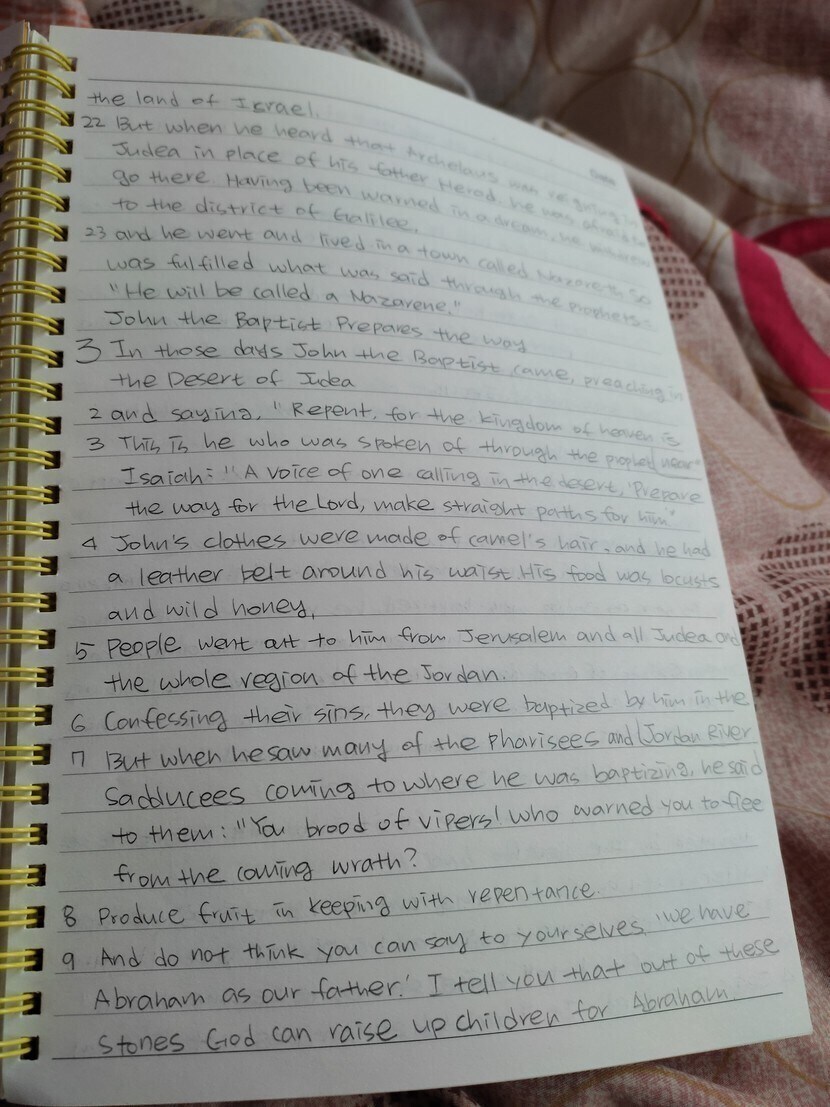 the land of Israel.
22 But when he heard that Archelaus was reigning in
Judea in place of his father Herod, he was afraid to
go there. Having been warned in a dream, he withdrew
to the district of Galilee.
23 and he went and lived in a town called Nazareth. So
was fulfilled what was said through the prophets:
"He will be called a Nazarene."
John the Baptist Prepares the way
3 In those days John the Baptist came, preaching in
the Desert of Judea
2 and saying, "Repent, for the kingdom of heaven is
3 This is he who was spoken of through the prophet near"
Isaiah: "A voice of one calling in the desert, 'Prepare
the way for the Lord, make straight paths for him"
4 John's clothes were made of camel's hair, and he had
a leather belt around his waist. His food was locusts
and wild honey.
5 People went out to him from Jerusalem and all Judea and
the whole region of the Jordan.
6 Confessing their sins, they were baptized by him in the
7 But when he saw many of the Pharisees and (Jordan River
Sadducees coming to where he was baptizing, he said
to them: "You brood of vipers! Who warned you to flee
from the coming wrath?
8 Produce fruit in keeping with repentance.
9 And do not think you can say to yourselves, 'we have
Abraham as our father.' I tell you that out of these
stones God can raise up children for Abraham.